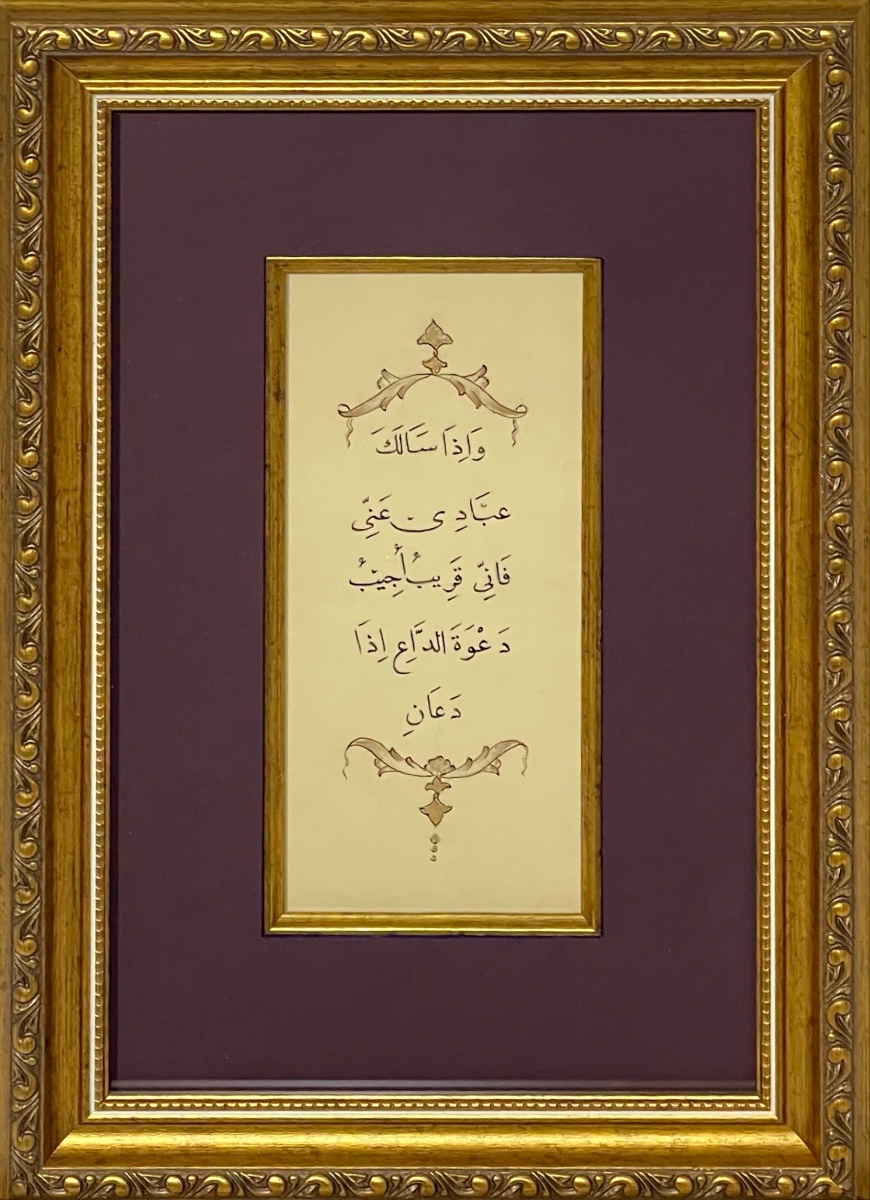 وَاِذَا سَالَكَ
عبَّادِى عَنِّى
فَانِّى قَرِيبُ أُجِيْبُ
دَعْوَةَ الدَّاعِ اِذَا
دَعَانِ